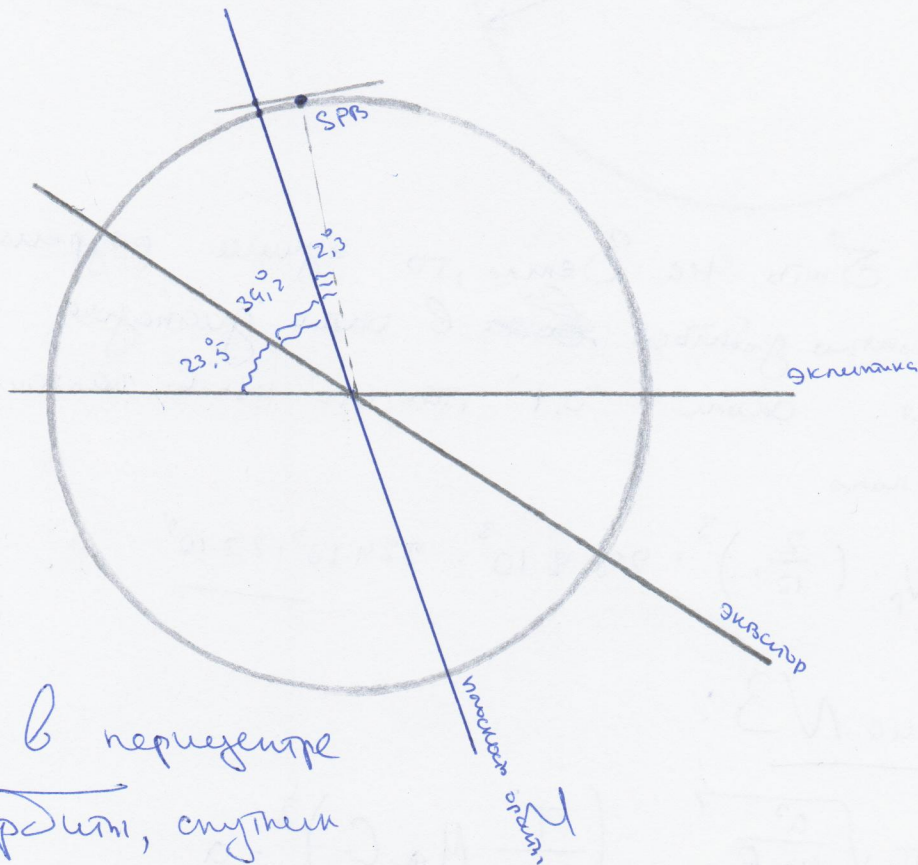 SPB
2°,3
34°,2
23°,5
эклиптика
экватор
плоскость орбиты
В перицентре
орбиты, спутник